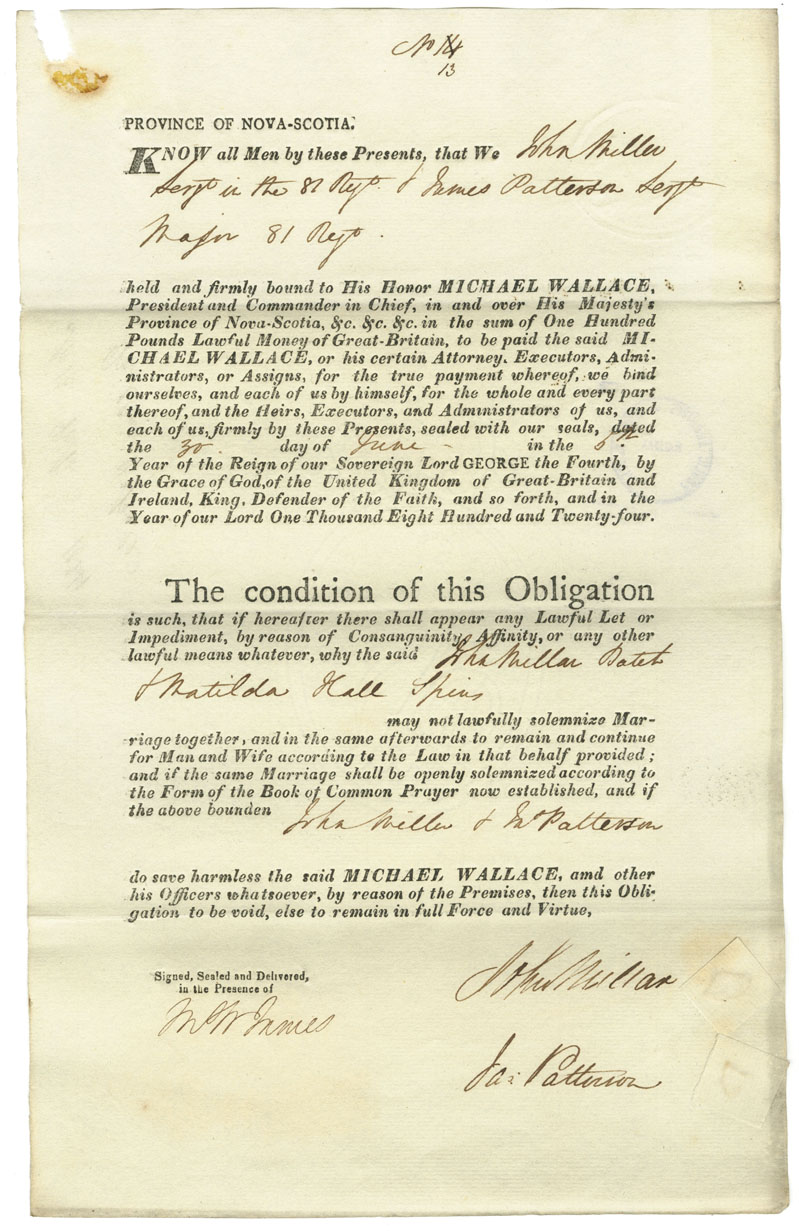 No 14
13
PROVINCE OF NOVA-SCOTIA.
KNOW all Men by these Presents, that We John Miller
Sergt in the 81 Regt. & James Patterson Sergt
Major 81 Regt.
held and firmly bound to His Honor MICHAEL WALLACE,
President and Commander in Chief, in and over His Majesty's
Province of Nova-Scotia, &c. &c. &c. in the sum of One Hundred
Pounds Lawful Money of Great-Britain, to be paid the said MI-
CHAEL WALLACE, or his certain Attorney, Executors, Admi-
nistrators, or Assigns, for the true payment whereof, we bind
ourselves, and each of us by himself, for the whole and every part
thereof, and the Heirs, Executors, and Administrators of us, and
each of us, firmly by these Presents, sealed with our seals, dated
the 30. day of June - in the 5th
Year of the Reign of our Sovereign Lord GEORGE the Fourth, by
the Grace of God, of the United Kingdom of Great-Britain and
Ireland, King, Defender of the Faith, and so forth, and in the
Year of our Lord One Thousand Eight Hundred and Twenty-four.
The condition of this Obligation
is such, that if hereafter there shall appear any Lawful Let or
Impediment, by reason of Consanguinity, Affinity, or any other
lawful means whatever, why the said John Millar Batch
& Matilda Hall Spins
may not lawfully solemnize Mar-
riage together, and in the same afterwards to remain and continue
for Man and Wife according to the Law in that behalf provided ;
and if the same Marriage shall be openly solemnized according to
the Form of the Book of Common Prayer now established, and if
the above bounden John Miller & Jas Patterson
do save harmless the said MICHAEL WALLACE, amd other
his Officers whatsoever, by reason of the Premises, then this Obli-
gation to be void, else to remain in full Force and Virtue,
Signed, Sealed and Delivered,
in the Presence of
James
John Millar
Jas Patterson